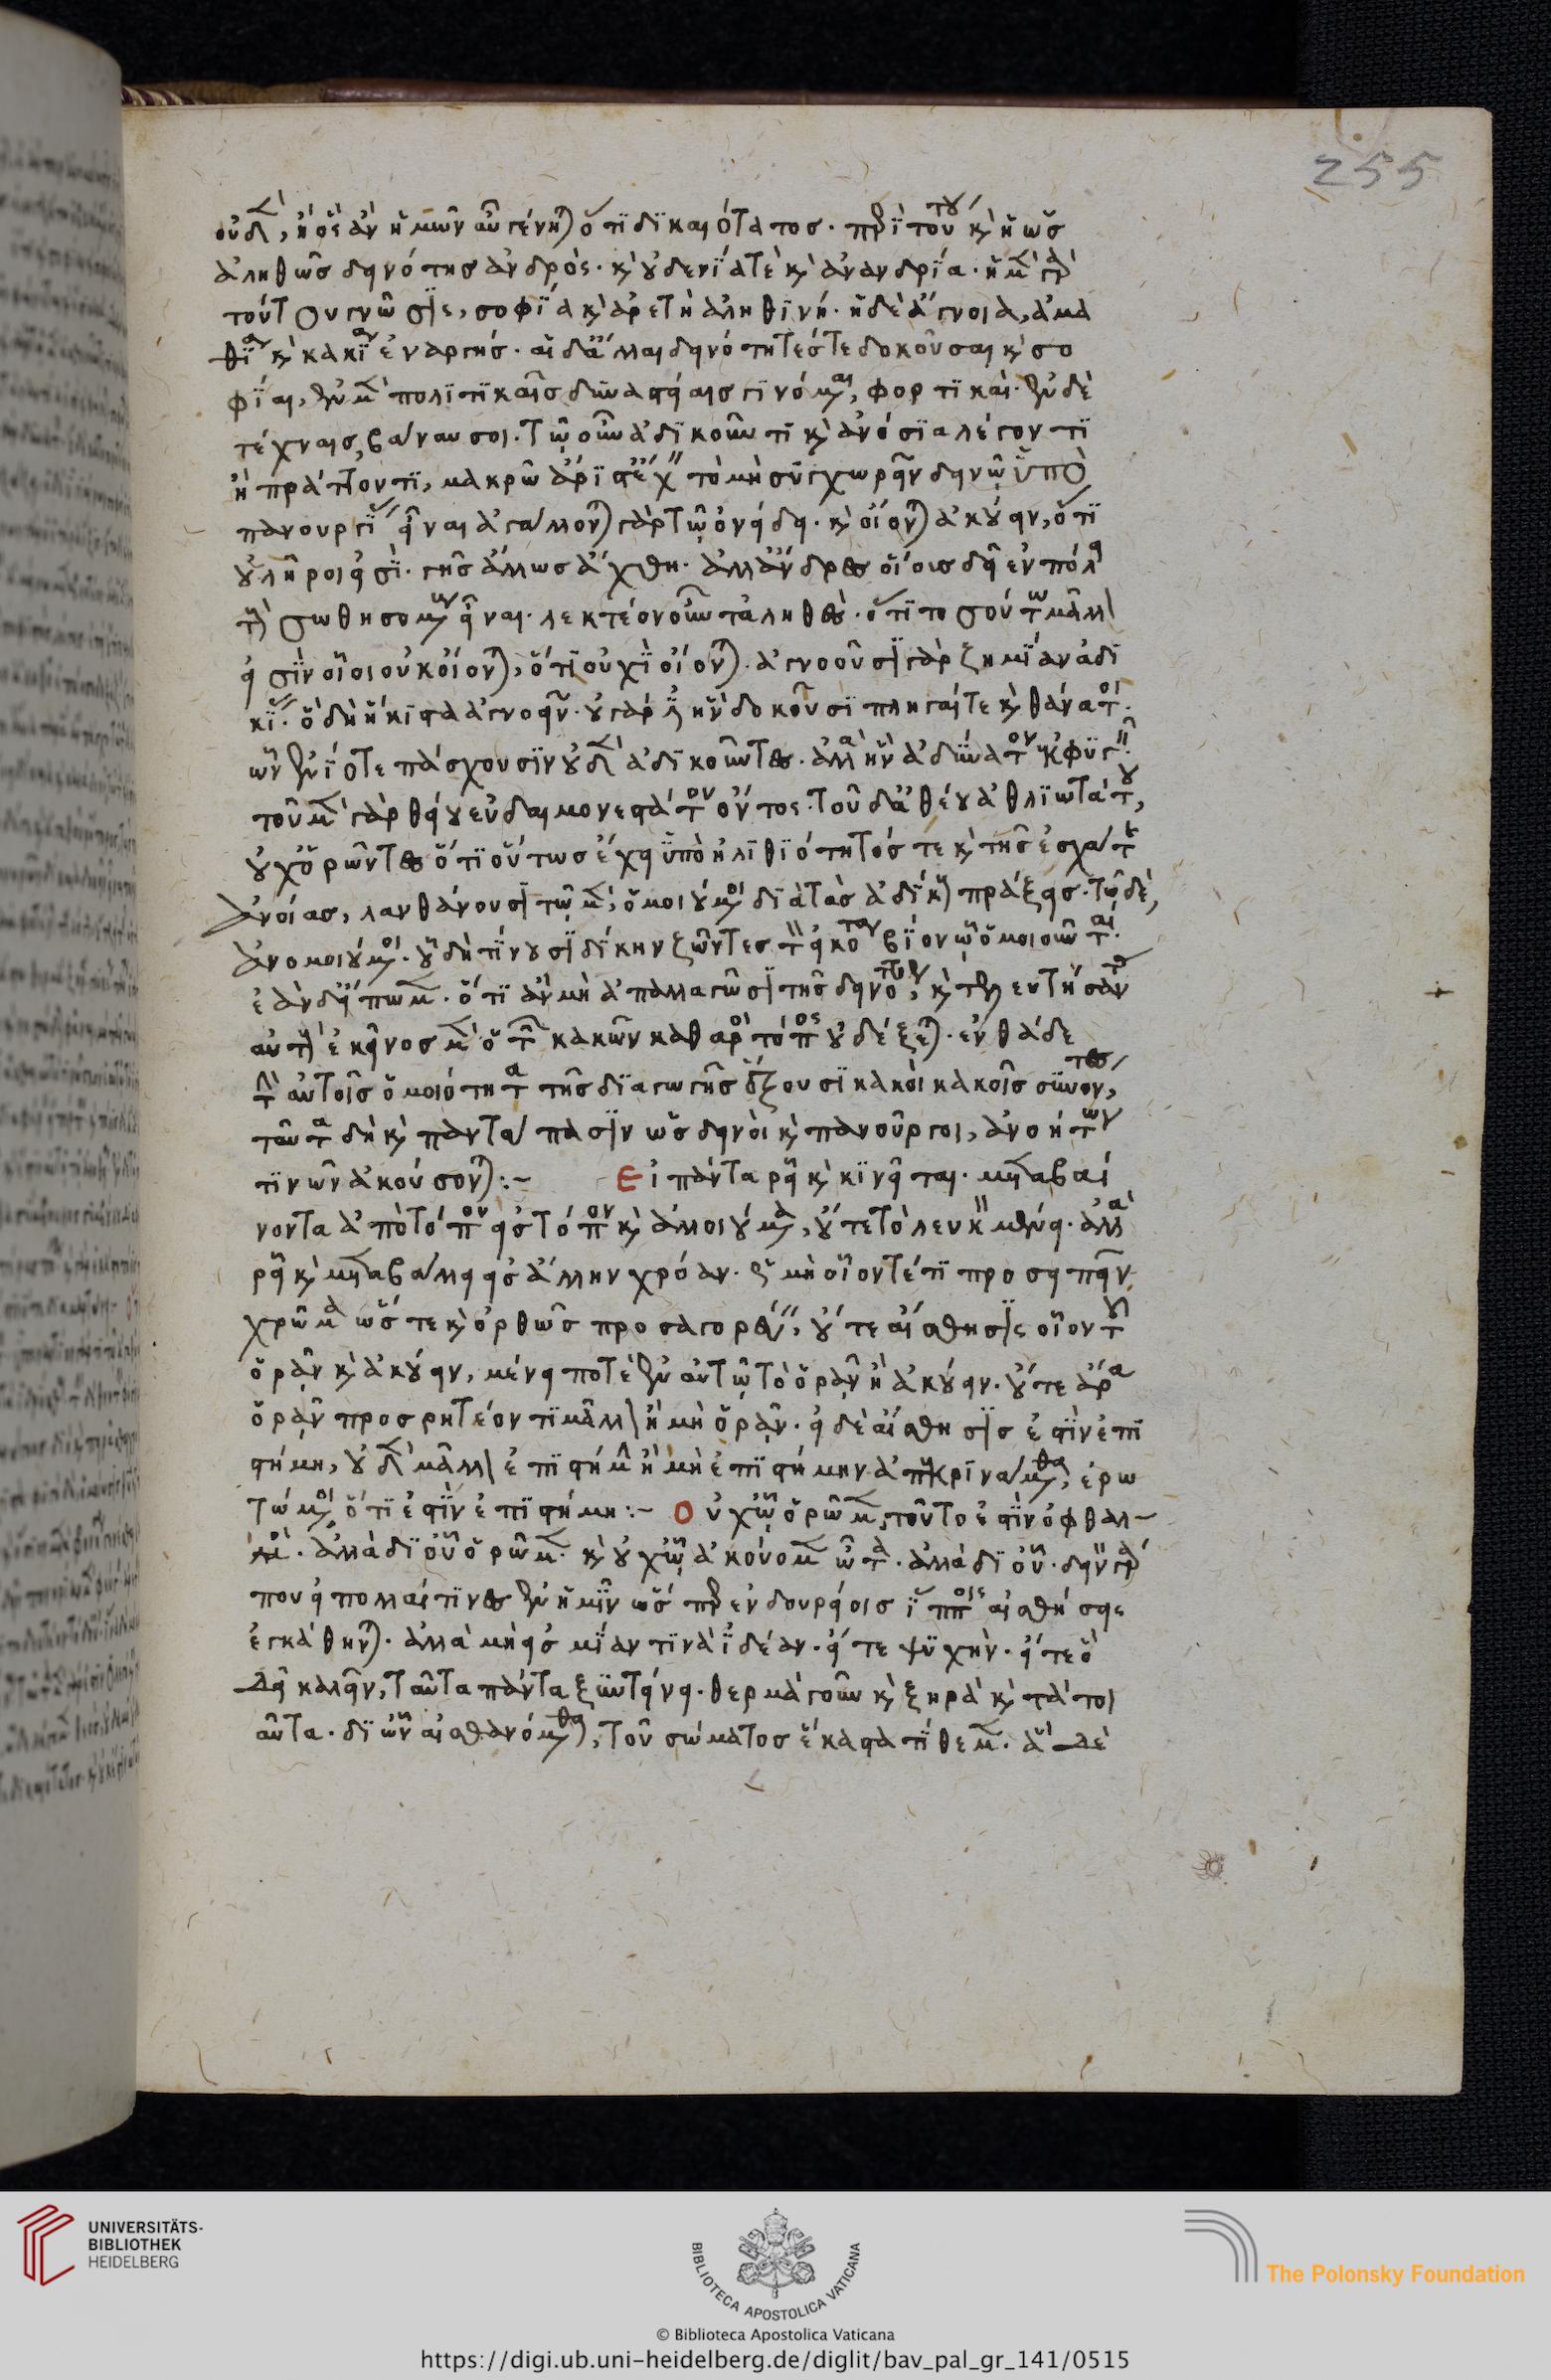 οὐδὲν, ἢ ὃς ἂν ἡμῶν αὖ γένηται ὅτι δικαιότατος. περὶ τούτου καὶ ἡ ὡς
ἀληθῶς δεινότης ἀνδρὸς. καὶ οὐδενία τὲ καὶ ἀνανδρία. ἡ μὲν γὰρ
τούτου γνῶσις, σοφία καὶ ἀρετὴ ἀληθινή. ἡ δὲ ἄγνοια, ἀμα
θία καὶ κακία ἐναργής. αἱ δ' ἄλλαι δεινότητές τε δοκοῦσαι καὶ σο
φίαι, ἐν μὲν πολιτικαῖς δυναστείαις γινόμεναι, φορτικαὶ. ἐν δὲ
τέχναις, βάναυσοι. τῷ οὖν ἀδικοῦντι καὶ ἀνόσια λέγοντι
ἢ πράττοντι, μακρῷ ἄριστ' ἔχει τὸ μὴ συγχωρεῖν δεινῷ ὑπὸ
πανουργίας εἶναι ἀγάλλονται γὰρ τῷ ὀνείδει. καὶ οἴονται ἀκούειν, ὅτι
οὐ λῆροι εἰσὶ. γῆς ἄλλως ἄχθη. ἀλλ' ἄνδρες οἵοις δεῖ ἐν πόλει
τοὺς σωθησομένους εἶναι. λεκτέον οὖν τἀληθὲς. ὅτι τοσούτῳ μᾶλλον
εἰσὶν οἷοι οὐκ οἴονται, ὅτι οὐχὶ οἴονται. ἀγνοοῦσι γὰρ ζημίαν ἀδι
κίας. ὃ δὴ ἥκιστα ἀγνοεῖν. οὐ γάρ ἐστιν ἣν δοκοῦσι πληγαί τε καὶ θάνατοι.
ὧν ἐνίοτε πάσχουσιν οὐδὲν ἀδικοῦντες. ἀλλὰ ἣν ἀδύνατον ἐκφυγεῖν.
τοῦ μὲν γὰρ θείου εὐδαιμονεστάτου ὄντος. τοῦ δ' ἀθέου ἀθλιωτάτου,
οὐχ ὁρῶντες ὅτι οὕτως ἔχει ὑπὸ ἠλιθιότητός τε καὶ τῆς ἐσχάτης
ἀνοίας, λανθάνουσι τῷ μὲν, ὁμοιούμενοι διὰ τὰς ἀδίκους πράξεις. τῷ δὲ,
ἀνομοιούμενοι. οὗ δὴ τίνουσι δίκην ζῶντες τὸν εἰκότα βίον ᾧ ὁμοιοῦνται.
ἐὰν δ' εἴπωμεν. ὅτι ἂν μὴ ἀπαλλαγῶσι τῆς δεινότητος, καὶ τελευτήσαντας
αὐτοὺς ἐκεῖνος μὲν ὁ τῶν κακῶν καθαρὸς τόπος οὐ δέξεται. ἐνθάδε
τὴν αὐτοῖς ὁμοιότητα τῆς διαγωγῆς ἕξουσι κακοὶ κακοῖς συνόντες,
ταῦτα δὴ καὶ παντάπασιν ὡς δεινοὶ καὶ πανοῦργοι, ἀνοήτων
τινῶν ἀκούσονται:~ Εἰ πάντα ῥεῖ καὶ κινεῖται. μεταβαί
νοντα ἀπὸ τόπου εἰς τόπον καὶ ἀλλοιούμενα, οὔτε τὸ λευκὸν μένει. ἀλλὰ
ῥεῖ καὶ μεταβάλλει εἰς ἄλλην χρόαν. ὃ μὴ οἷόν τέ τι προσειπεῖν
χρῶμα ὥστε καὶ ὀρθῶς προσαγορεύειν, οὔτε αἴσθησις οἷον τοῦ
ὁρᾶν καὶ ἀκούειν, μένει ποτὲ ἐν αὐτῷ τὸ ὁρᾶν ἢ ἀκούειν. οὔτε ἄρα
ὁρᾶν προσρητέον τι μᾶλλον ἢ μὴ ὁρᾶν. εἰ δὲ αἴσθησις ἐστὶν ἐπι
στήμη, οὐδὲν μᾶλλον ἐπιστήμην ἢ μὴ ἐπιστήμην ἀπεκρινάμεθα, ἐρω
τώμενοι ὅτι ἐστὶν ἐπιστήμη:~ Οὐχ ᾧ ὁρῶμεν, τοῦτο ἐστὶν ὀφθαλ-
μοὶ. ἀλλὰ δι' οὗ ὁρῶμεν. καὶ οὐχ ᾧ ἀκούομεν ὦτα. ἀλλὰ δι' οὗ. δεινὸν γάρ
που εἰ πολλαί τινες ἐν ἡμῖν ὥσπερ ἐν δουρείοις ἵπποις αἰσθήσεις
ἐγκάθηνται. ἀλλὰ μὴ εἰς μίαν τινὰ ἰδέαν. εἴτε ψυχὴν. εἴτε ὃ
δεῖ καλεῖν, ταῦτα πάντα ξυντείνει. θερμὰ γοῦν καὶ ξηρὰ καὶ τὰ τοι
αῦτα. δι' ὧν αἰσθανόμεθα, τοῦ σώματος ἕκαστα τίθεμεν. ἃ δὲ
255
UNIVERSITÄTS-
BIBLIOTHEK
HEIDELBERG
BIBLIOTECA APOSTOLICA VATICANA
The Polonsky Foundation
© Biblioteca Apostolica Vaticana
https://digi.ub.uni-heidelberg.de/diglit/bav_pal_gr_141/0515